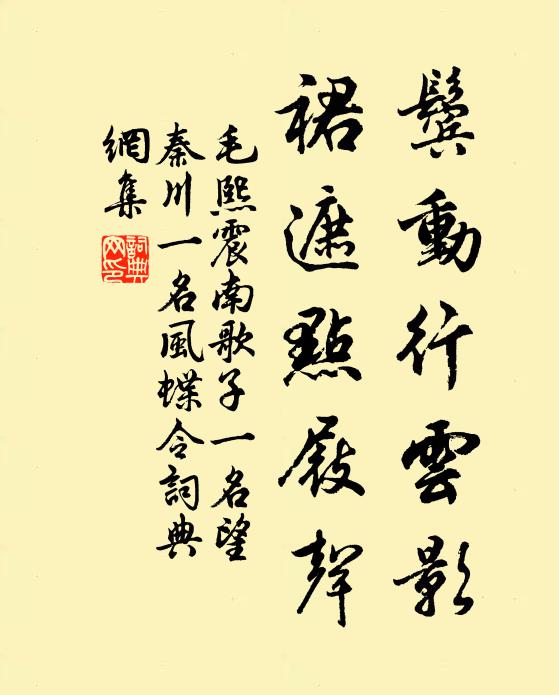 鬢動行雲影
裙遮點屐聲
毛熙震南歌子一名望
秦川一名風蝶令詞典
網集
詞典
网印